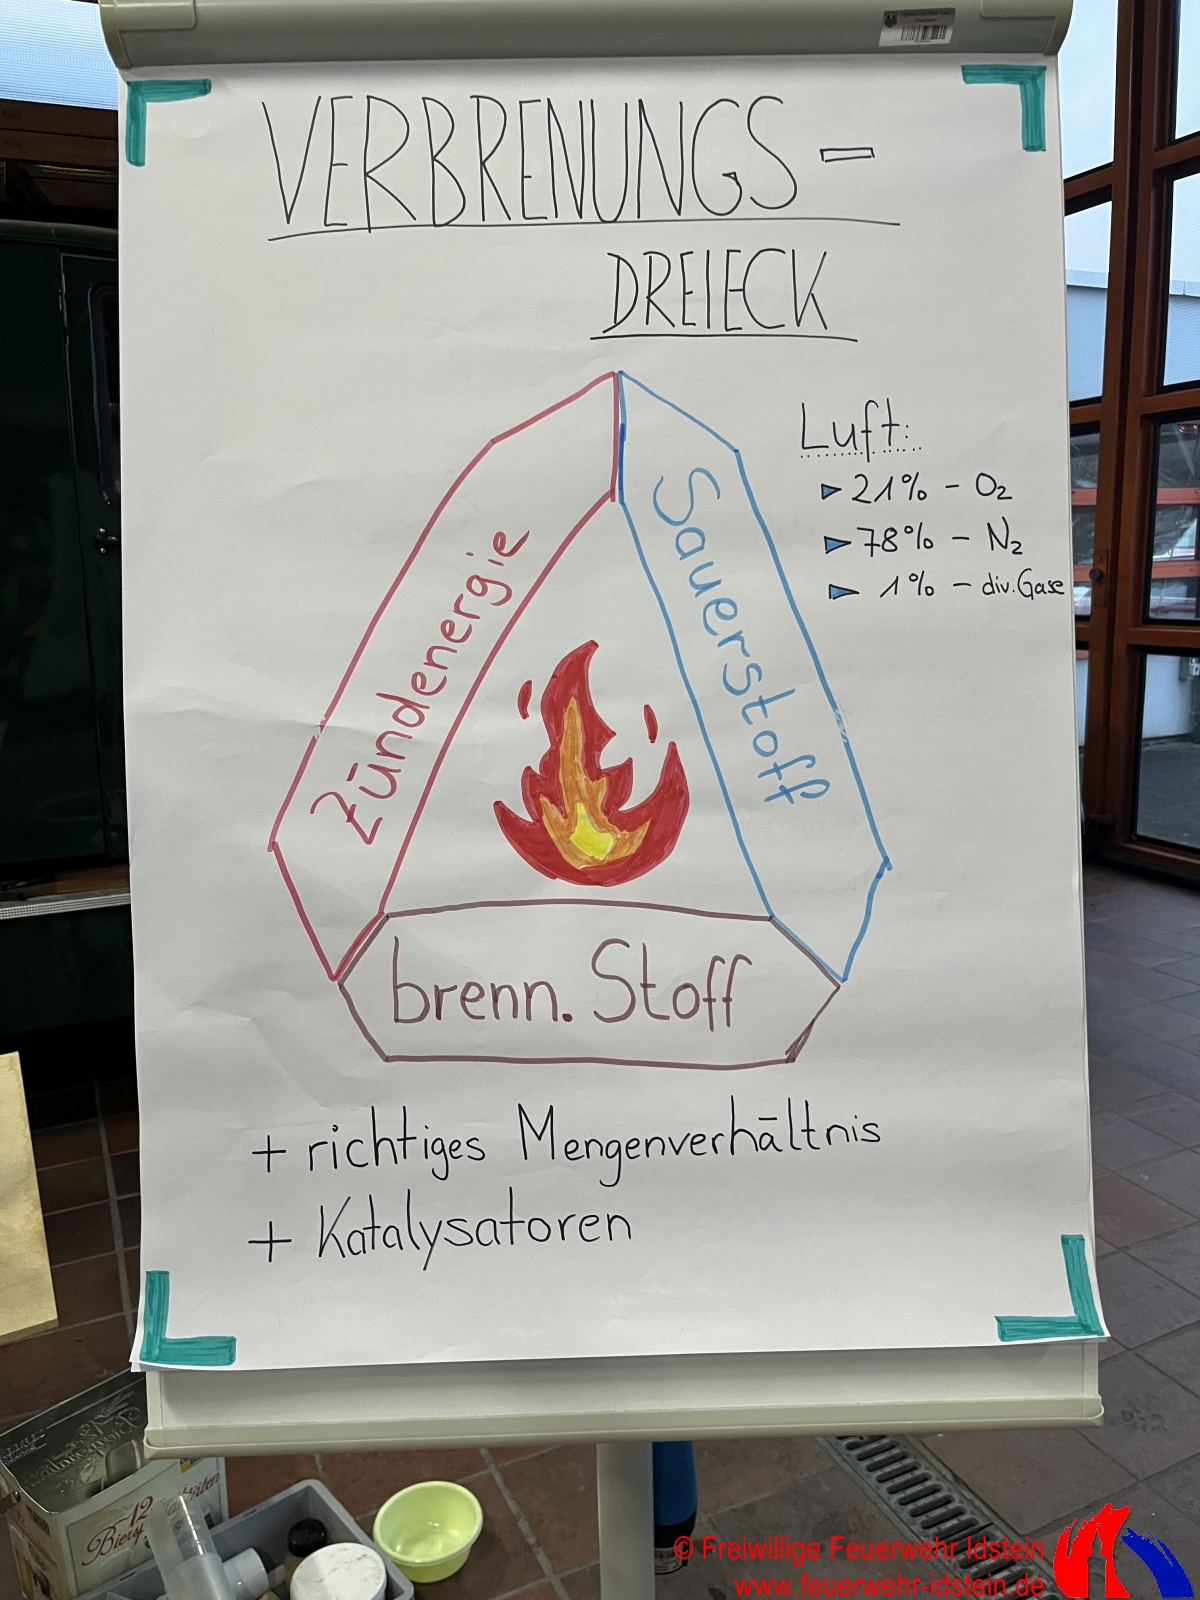 VERBRENUNGS-
DREIECK
Luft:
▶ 21% - O₂
▶ 78% - N₂
▶ 1% - div. Gase
Zündenergie
Sauerstoff
brenn. Stoff
+ richtiges Mengenverhältnis
+ Katalysatoren
12
© Freiwillige Feuerwehr Idstein
www.feuerwehr-idstein.de